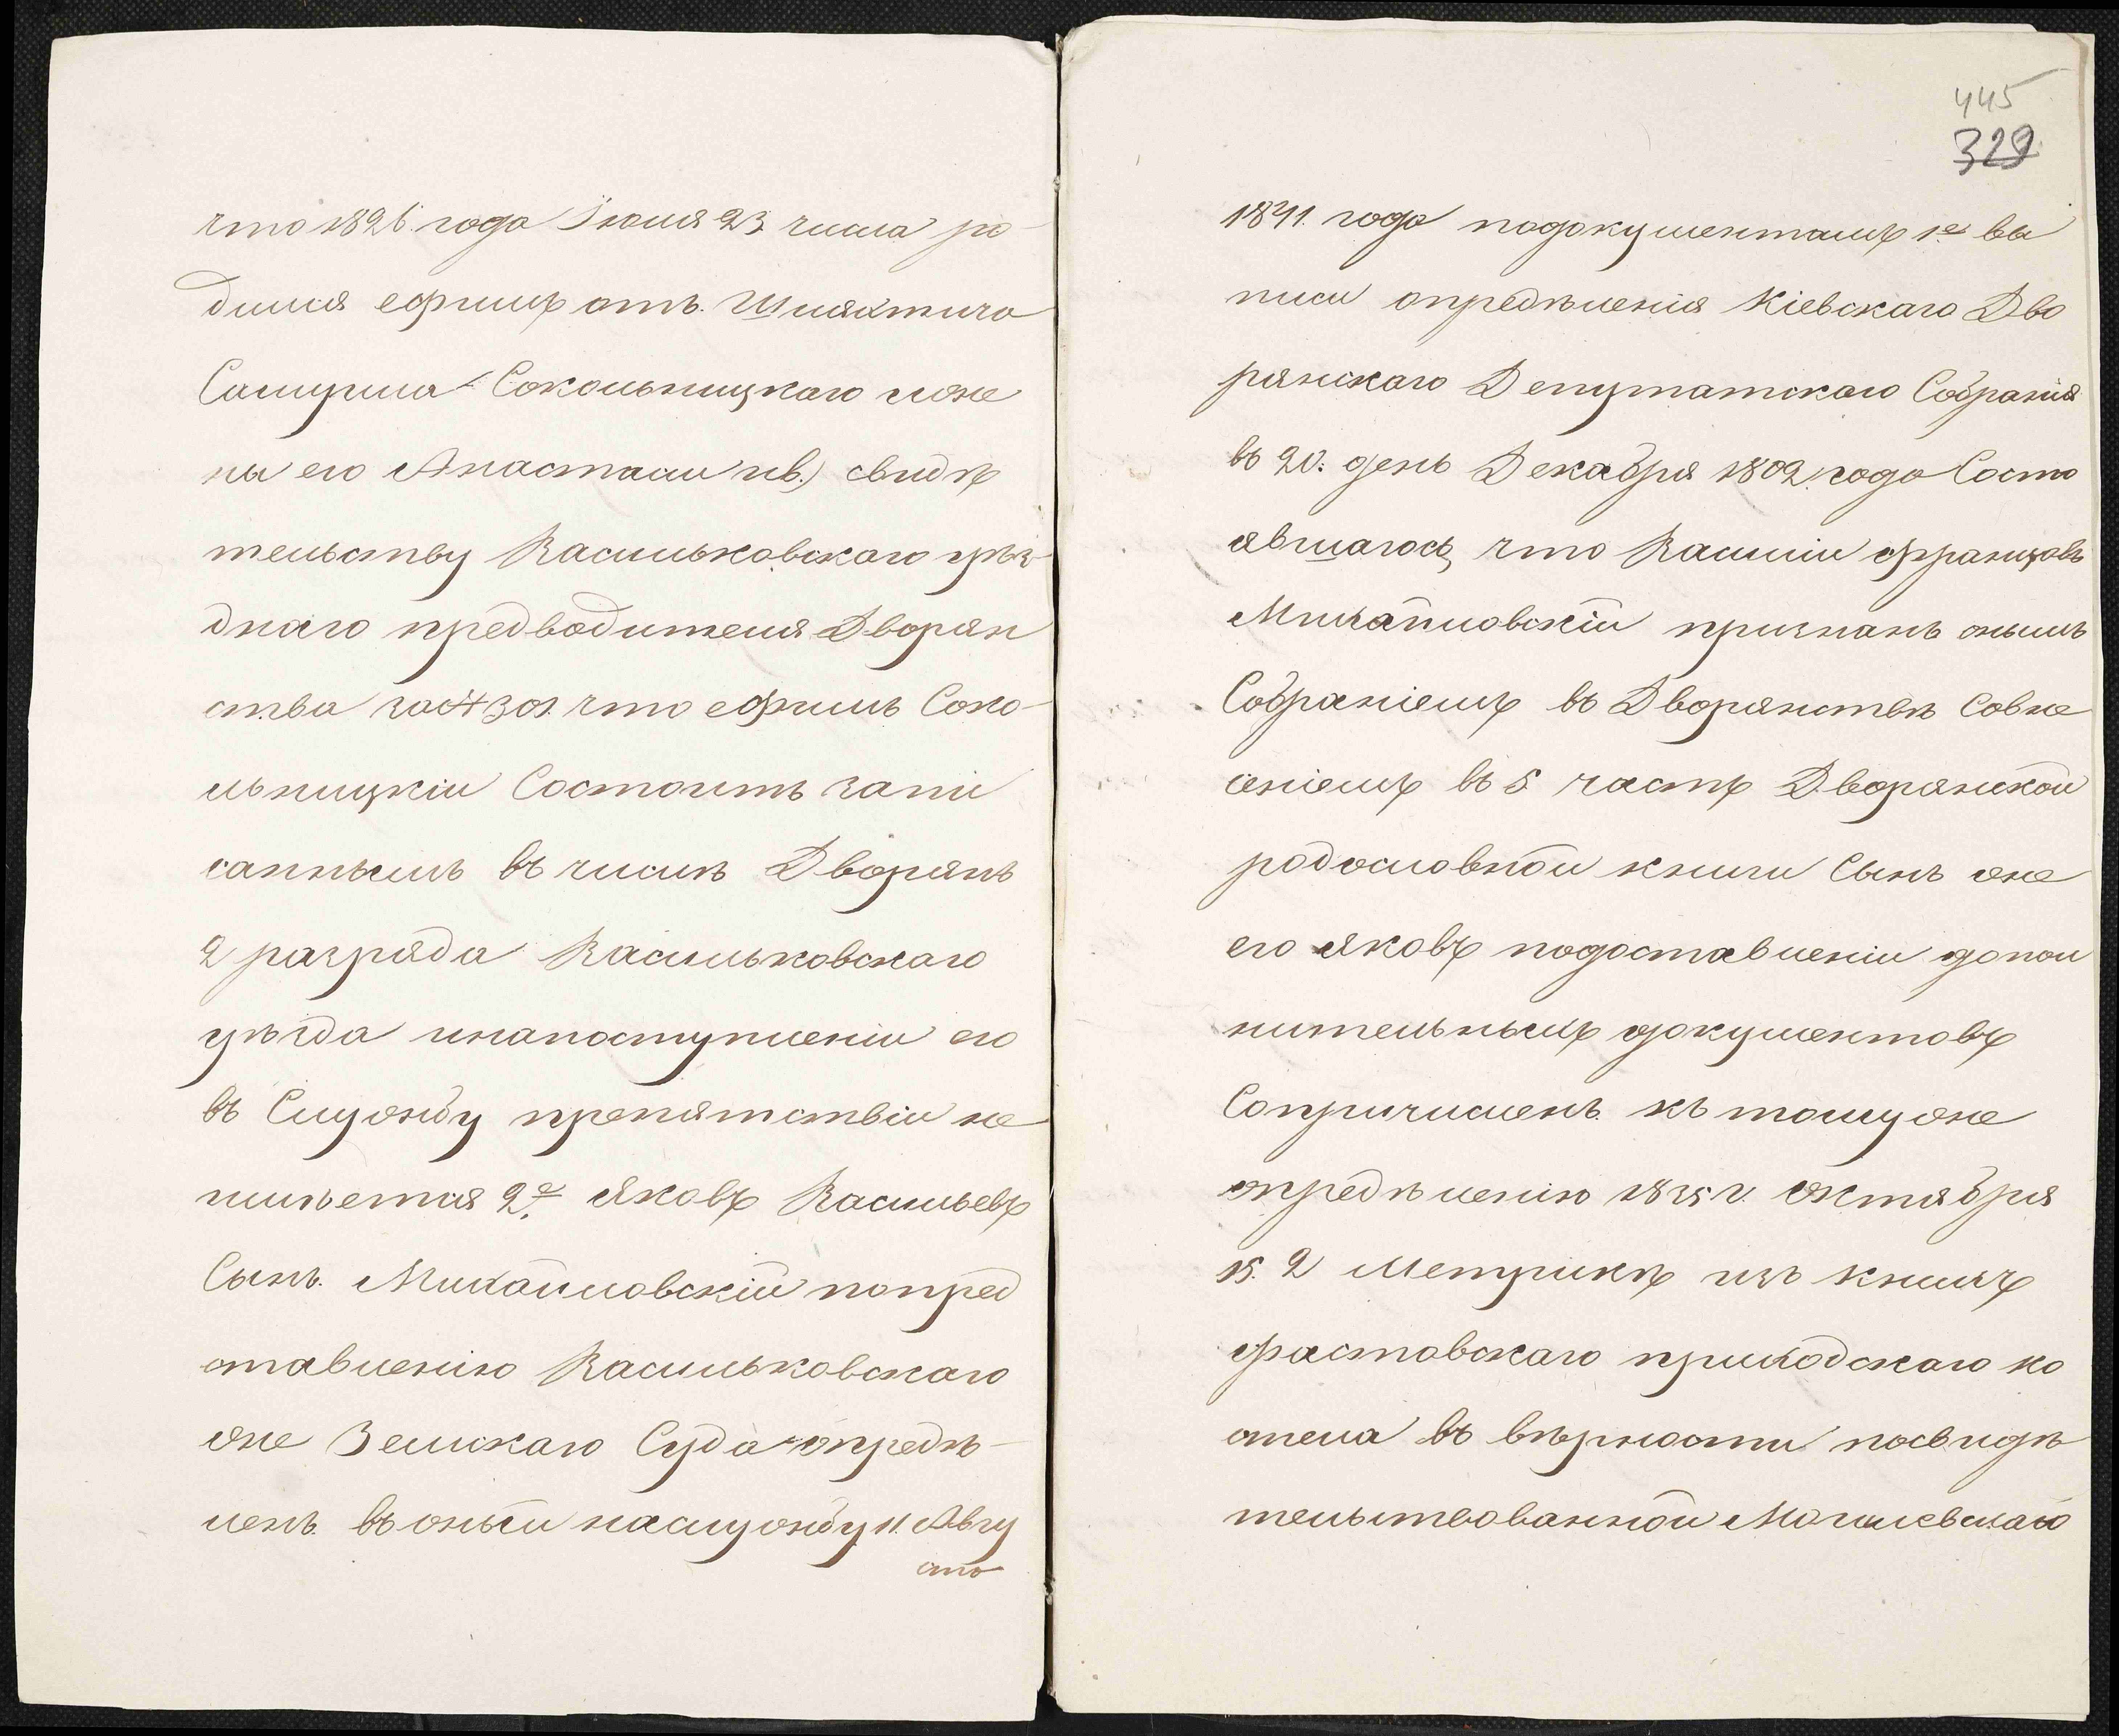 что 1826. года Іюля 23. числа ро
дился ефимъ отъ. Шляхтича
Самуила Сокольницкаго и же
ны его Анастасіи в.) свидѣ
тельству Васильковскаго уѣз-
днаго предводителя Дворян
ства за № 301. что ефимъ Соко-
льницкій Состоитъ запи
саннымъ въ числѣ Дворянъ
2 разряда Васильковскаго
уѣзда инапоступленіи его
въ Службу препятствіи не
имѣется 2.е Яковъ Васильевъ
Сынъ. Михайловскій попред
ставленію Васильковскаго
же Земскаго Суда опредѣ-
ленъ. въ оный наслужбу 11. Авгу
ста
445
329
1841. года подокументамъ 1.е вы
писи опредѣленія Кіевскаго Дво
рянскаго Депутатскаго Собранія
въ 20. день Декабря 1802. года Состо
явшагось, что Василій Францовъ
Михайловскій признанъ онымъ
Собраніемъ въ Дворянствѣ Совне
сеніемъ въ 5. часть Дворянской
родословной книги Сынъ же
его Яковъ подоставленіи допол
нительныхъ документовъ
Сопричисленъ. къ тому же
опредѣленію 1835 г. Октября
15. 2 Метрикѣ изъ книгъ
Фастовскаго приходскаго ко
стела въ вѣрности посвидѣ
тельствованной Могилевскаго